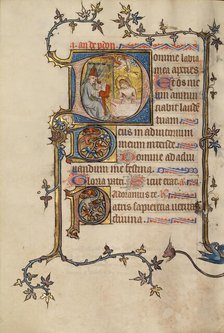 omine labia
mea aperies
Et os me
um annun
ciabit laude
tuam
eus in adiutorium
meum intende
Domine ad adiu
uandum me festina
Gloria patri Sicut erat
atris sapiencia ueritas
diuina